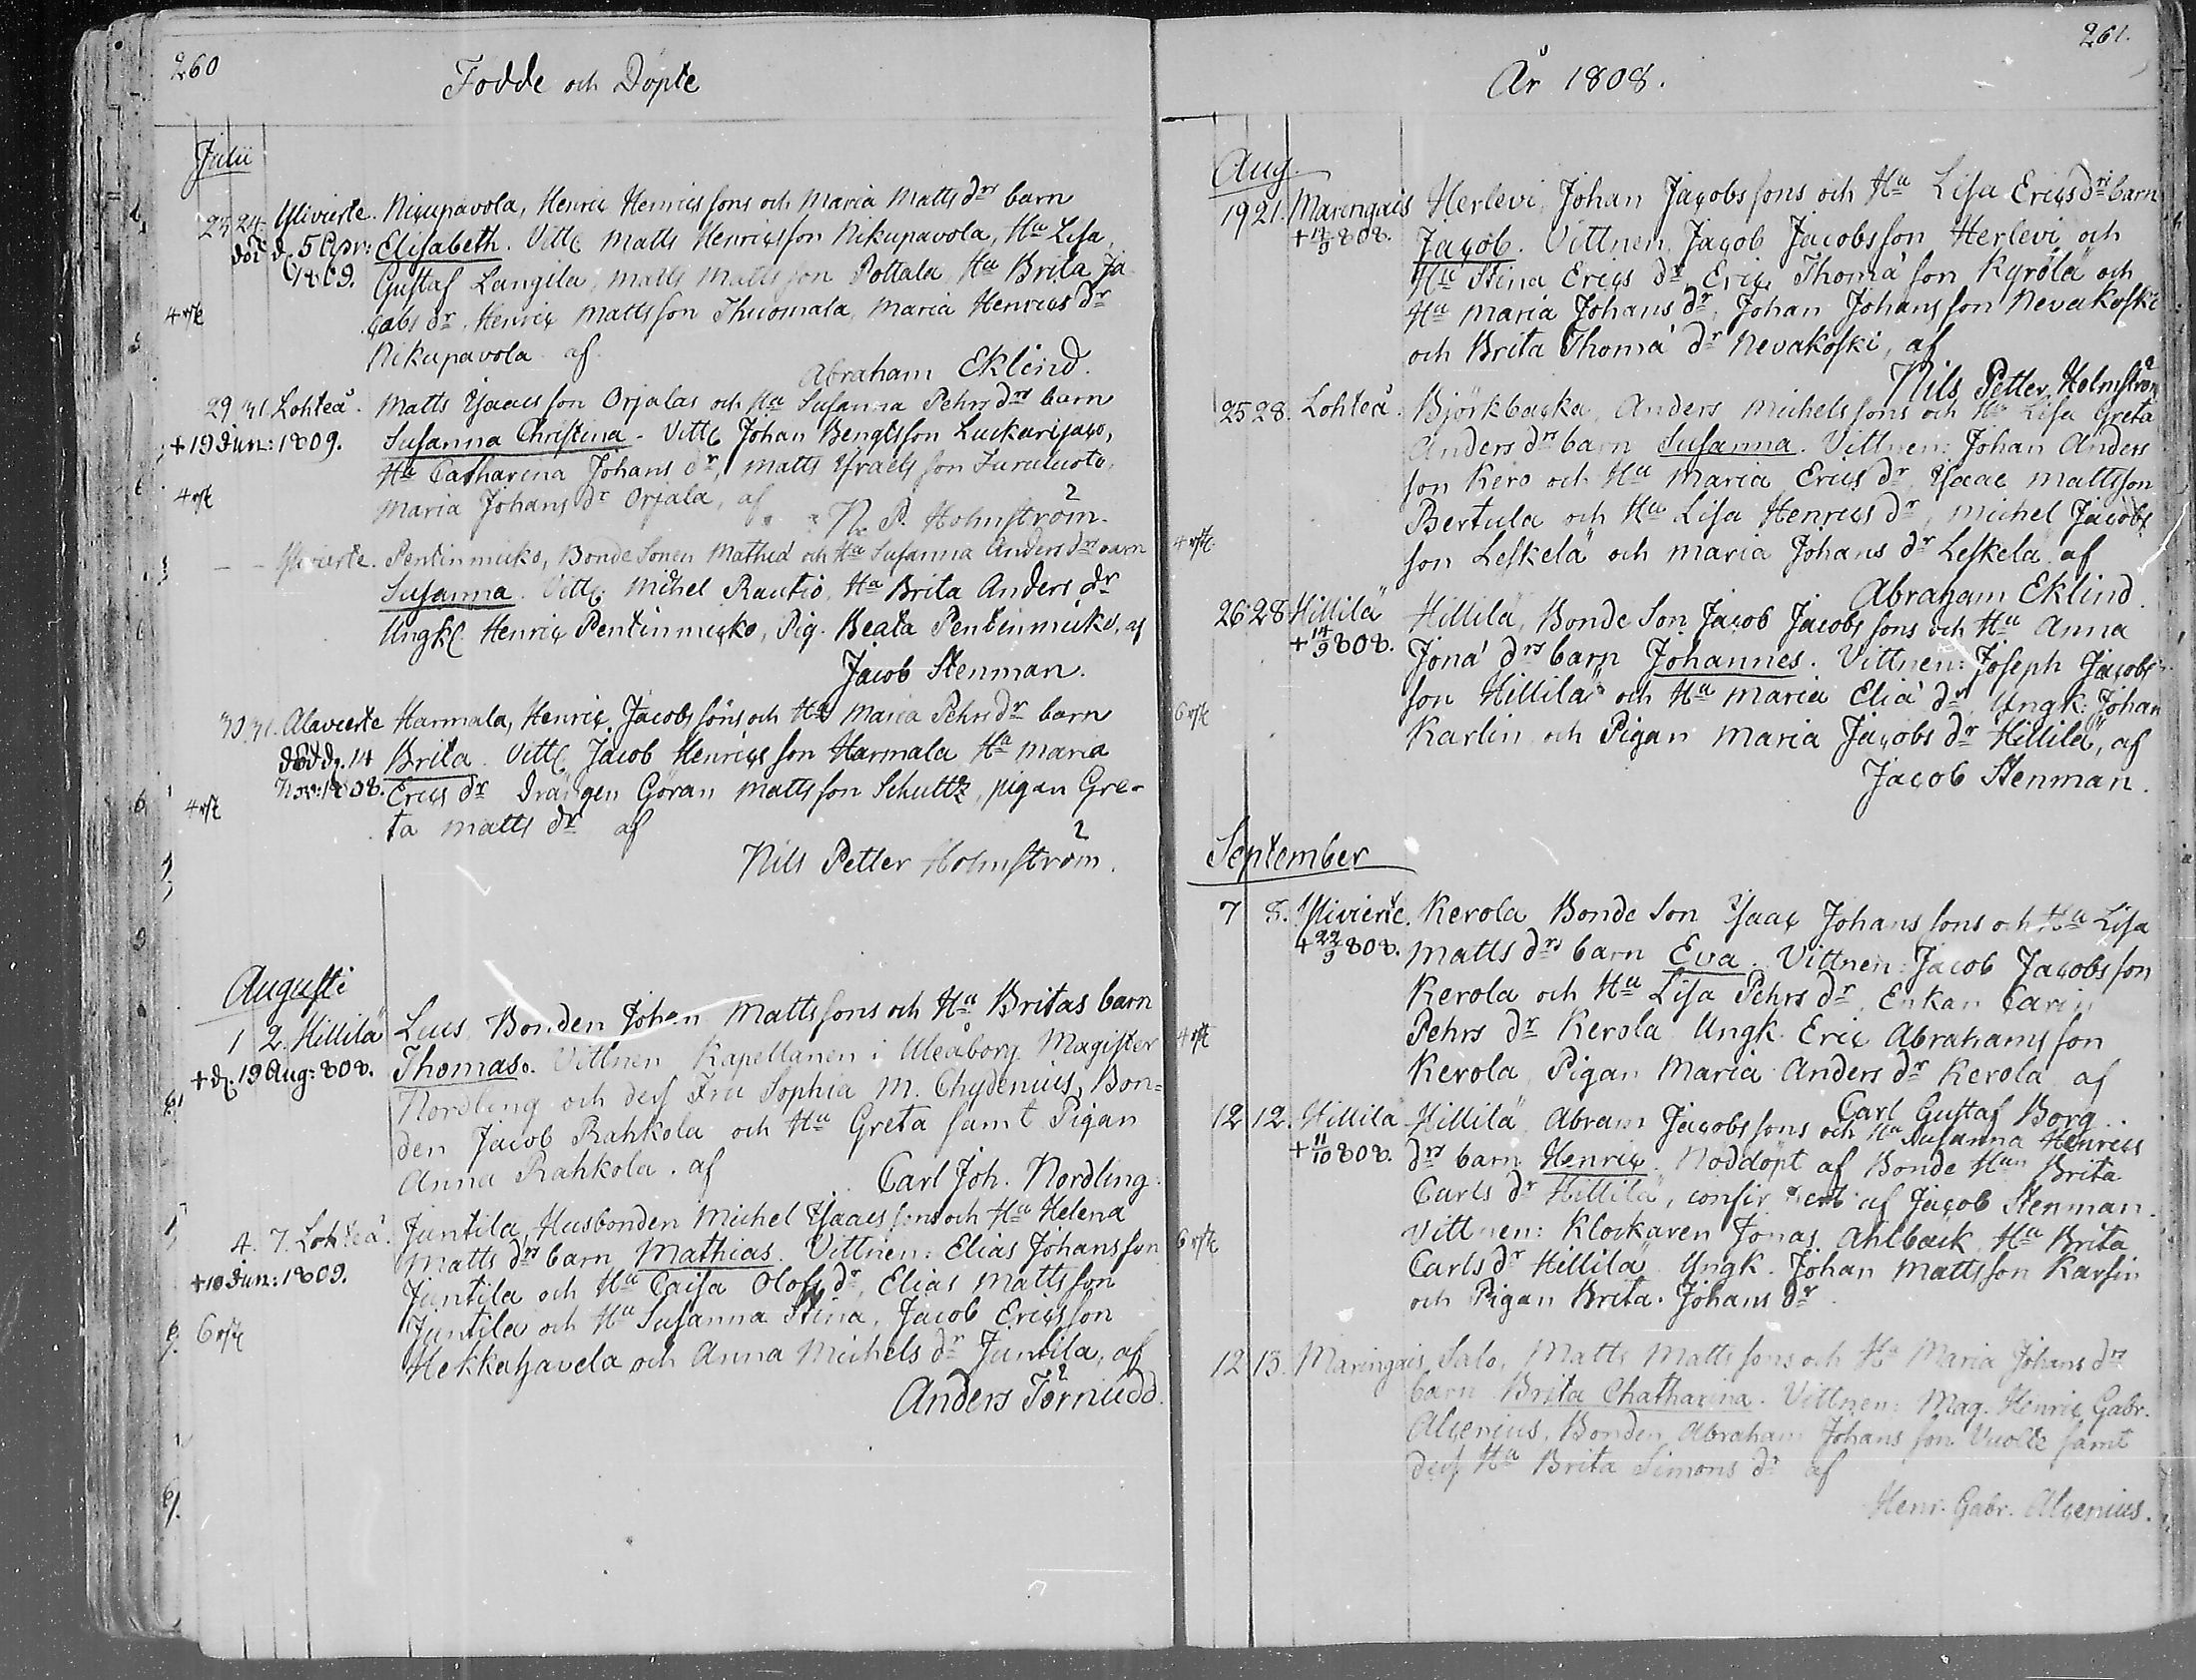 260
Födde och Döpte
Julii
23 24. Ylivierle. Nicupavola, Henric Henricssons och Maria Matts drs barn
död d. 5 Apr: Elisabeth. Vittn Matts Henricsson Nikupavola, Hu Lisa,
1809. Gustaf Langila, Matts Mattsson Pottala Hu Brita Ja
4 rst cobs dr. Henric Mattsson Thuomala, Maria Henrics dr
Nikupavola af
Abraham Eklind.
29 31. Lohteå. Matts Isaacsson Orjalas och Hu Susanna Pehrs drs barn
+ 19 Jun: 1809. Susanna Christina. Vittn Johan Bengtsson Luckarisaco,
Hu Catharina Johans dr, Matts Israelsson Juruluoto,
4 rst Maria Johans dr Orjala, af
N. P. Holmström.
— — Ylivierle. Pentinmuko, Bonde Sonen Mathiæ och Hu Susanna Anders drs barn
Susanna. Vittn Michel Rautio, Hu Brita Anders dr
Ungk. Henric Pentinmucko, Pig. Beata Pentinmuko, af
Jacob Stenman.
30 31. Alavierle Harmala, Henric Jacobssons och Hu Maria Pehrs dr barn
död d. 14 Brita. Vittn Jacob Henricsson Harmala Hu Maria
Nov: 1808. Erics dr Drängen Göran Mattsson Schultz, pigan Gre-
4 rst ta Matts dr af
Nils Petter Holmström.
Augusti
1 2. Hillilä Luus, Bonden Johan Mattssons och Hu Britas barn
+ d. 19 Aug: 808. Thomas. Vittnen Kapellanen i Uleåborg Magister
Nordling och dess Fru Sophia M. Chydenius, Bon=
den Jacob Rahkola och Hu Greta samt Pigan
Anna Rahkola. af
Carl Joh. Nordling.
4. 7. Lohteå. Juntila, Husbonden Michel Isaacssons och Hu Helena
Matts drs barn Mathias. Vittnen: Elias Johansson
+ 10 Jun: 1809. Juntila och Hu Caisa Olofs dr, Elias Mattsson
Juntila och Hu Susanna Stina, Jacob Ericsson
6 rst Hekkahavela och Anna Michels dr Juntila, af
Anders Törnudd.
261.
År 1808.
Aug.
19 21. Maringais Herlevi, Johan Jacobssons och Hu Lisa Erics drs barn
808. Jacob. Vittnen, Jacob Jacobsson Herlevi och
Hu Stina Erics dr, Eric Thomæ son Kyrölä och
Hu Maria Johans dr, Johan Johansson Nevakoski
och Brita Thomæ dr Nevakoski, af
Nils Petter Holmström
25 28. Lohteå. Björkbacka, Anders Michelssons och Hu Lisa Greta
Anders drs barn Susanna. Vittnen: Johan Anders
son Kero och Hu Maria Erics dr Isaac Mattsson
Bertula och Hu Lisa Henrics dr, Michel Jacobs
4 rst son Leskelä och Maria Johans dr Leskelä af
Abraham Eklind.
26 28 Hillilä Hillilä, Bonde Son Jacob Jacobssons och Hu Anna
+ 14/9 808. Jonæ drs barn Johannes. Vittnen: Joseph Jacobs
son Hillilä och Hu Maria Eliæ dr, Ungk: Johan
6 rst Karlin och Pigan Maria Jacobs dr Hillilä, af
Jacob Stenman.
September
7 8. Ylivierle. Kerola Bonde Son Isaac Johanssons och Hu Lisa
+ 22/9 808. Matts drs barn Eva. Vittnen: Jacob Jacobsson
Kerola och Hu Lisa Pehrs dr, Enkan Carin
4 rst Pehrs dr Kerola Ungk. Eric Abrahamsson
Kerola, Pigan Maria Anders dr Kerola af
Carl Gustaf Borg.
12 12. Hillilä Hillilä Abram Jacobssons och Hu Susanna Henrics
+ 11/10 808. drs barn Henric. Nöddöpt af Bonde Hun Brita
Carls dr Hillilä, confirmert af Jacob Stenman.
6 rst Vittnen: Klockaren Jonas Ahlbäck, Hu Brita
Carls dr Hillilä Ungk. Johan Mattsson Karsin
och Pigan Brita Johans dr.
12 13. Maringais, Salo, Matts Mattssons och Hu Maria Johans drs
barn Brita Chatharina. Vittnen: Mag. Henric Gabr.
Alcenius, Bonden Abraham Johansson Vuolle samt
dess Hu Brita Simons dr af
Henr. Gabr. Alcenius.